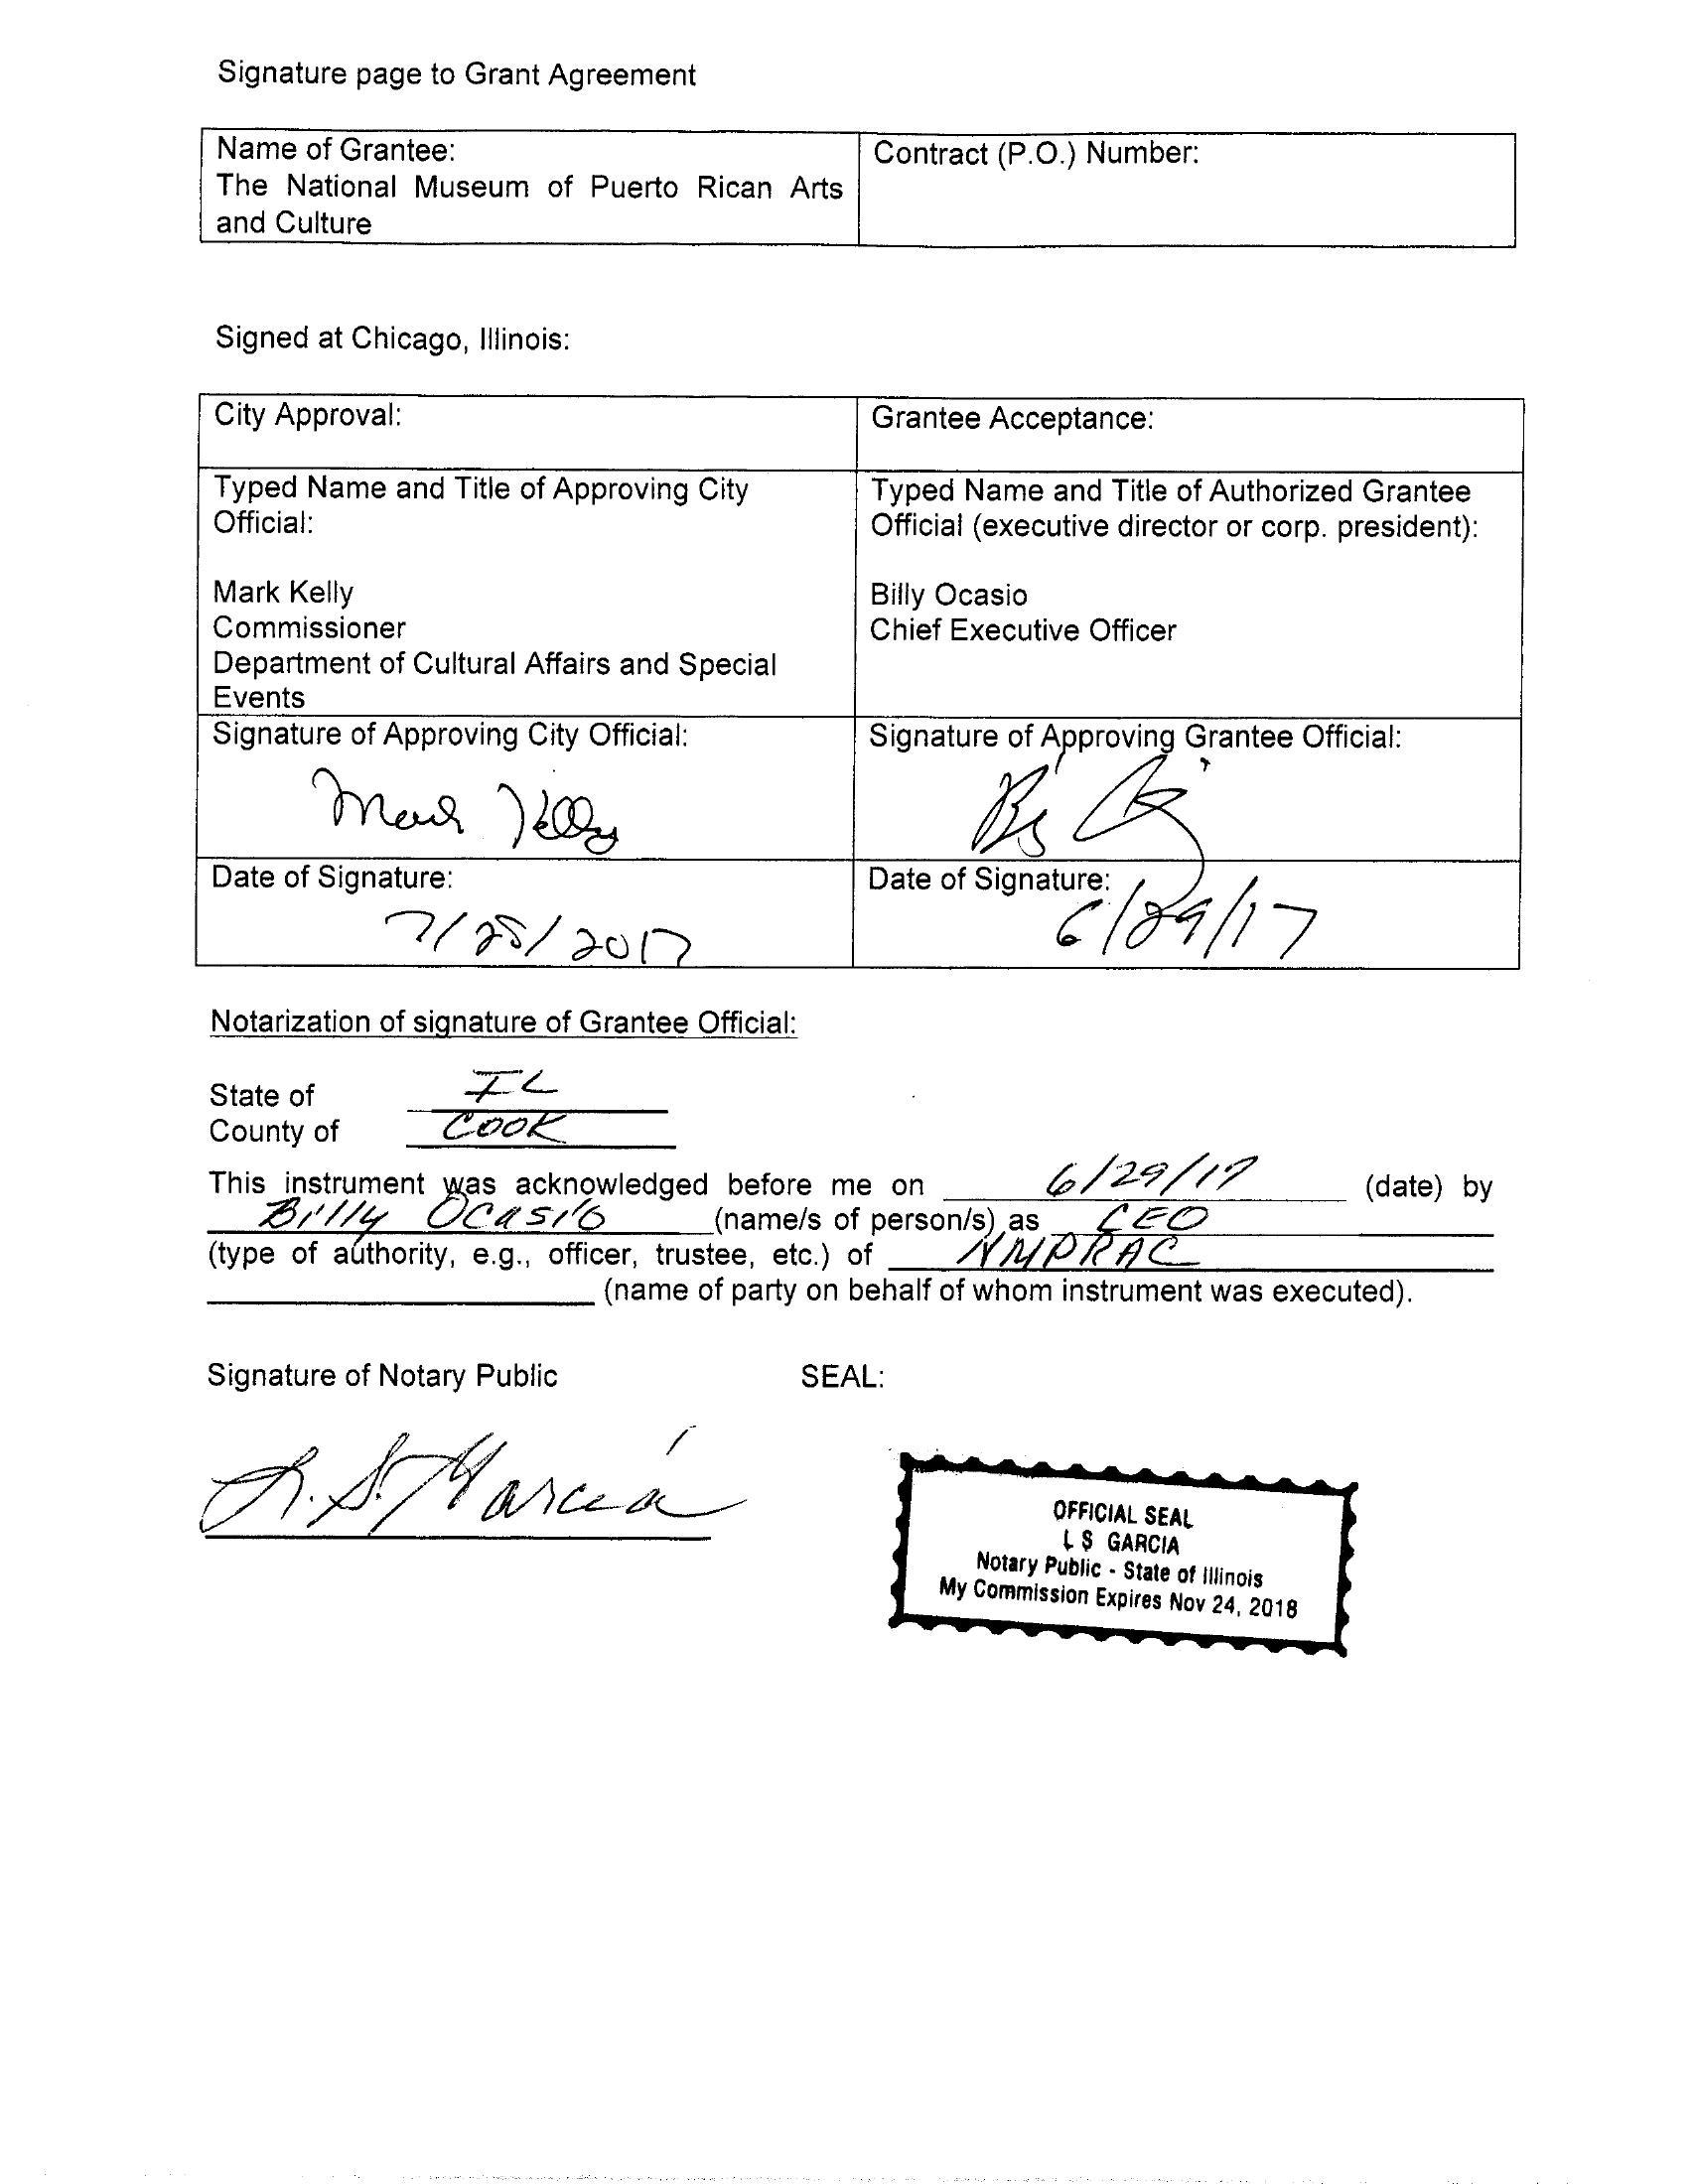 Signature page to Grant Agreement
Name of Grantee:
The National Museum of Puerto Rican Arts
and Culture
Contract (P.O.) Number:
Signed at Chicago, Illinois:
City Approval:
Grantee Acceptance:
Typed Name and Title of Approving City
Official:
Mark Kelly
Commissioner
Department of Cultural Affairs and Special
Events
Typed Name and Title of Authorized Grantee
Official (executive director or corp. president):
Billy Ocasio
Chief Executive Officer
Signature of Approving City Official:
Mark Kelly
Signature of Approving Grantee Official:
Date of Signature:
7/25/2017
Date of Signature:
6/29/17
Notarization of signature of Grantee Official:
State of IL
County of COOK
This instrument was acknowledged before me on 6/29/17 (date) by
Billy Ocasio (name/s of person/s) as CEO
(type of authority, e.g., officer, trustee, etc.) of NMPRAC
(name of party on behalf of whom instrument was executed).
Signature of Notary Public
SEAL:
L. S. Garcia
OFFICIAL SEAL
L S GARCIA
Notary Public - State of Illinois
My Commission Expires Nov 24, 2018